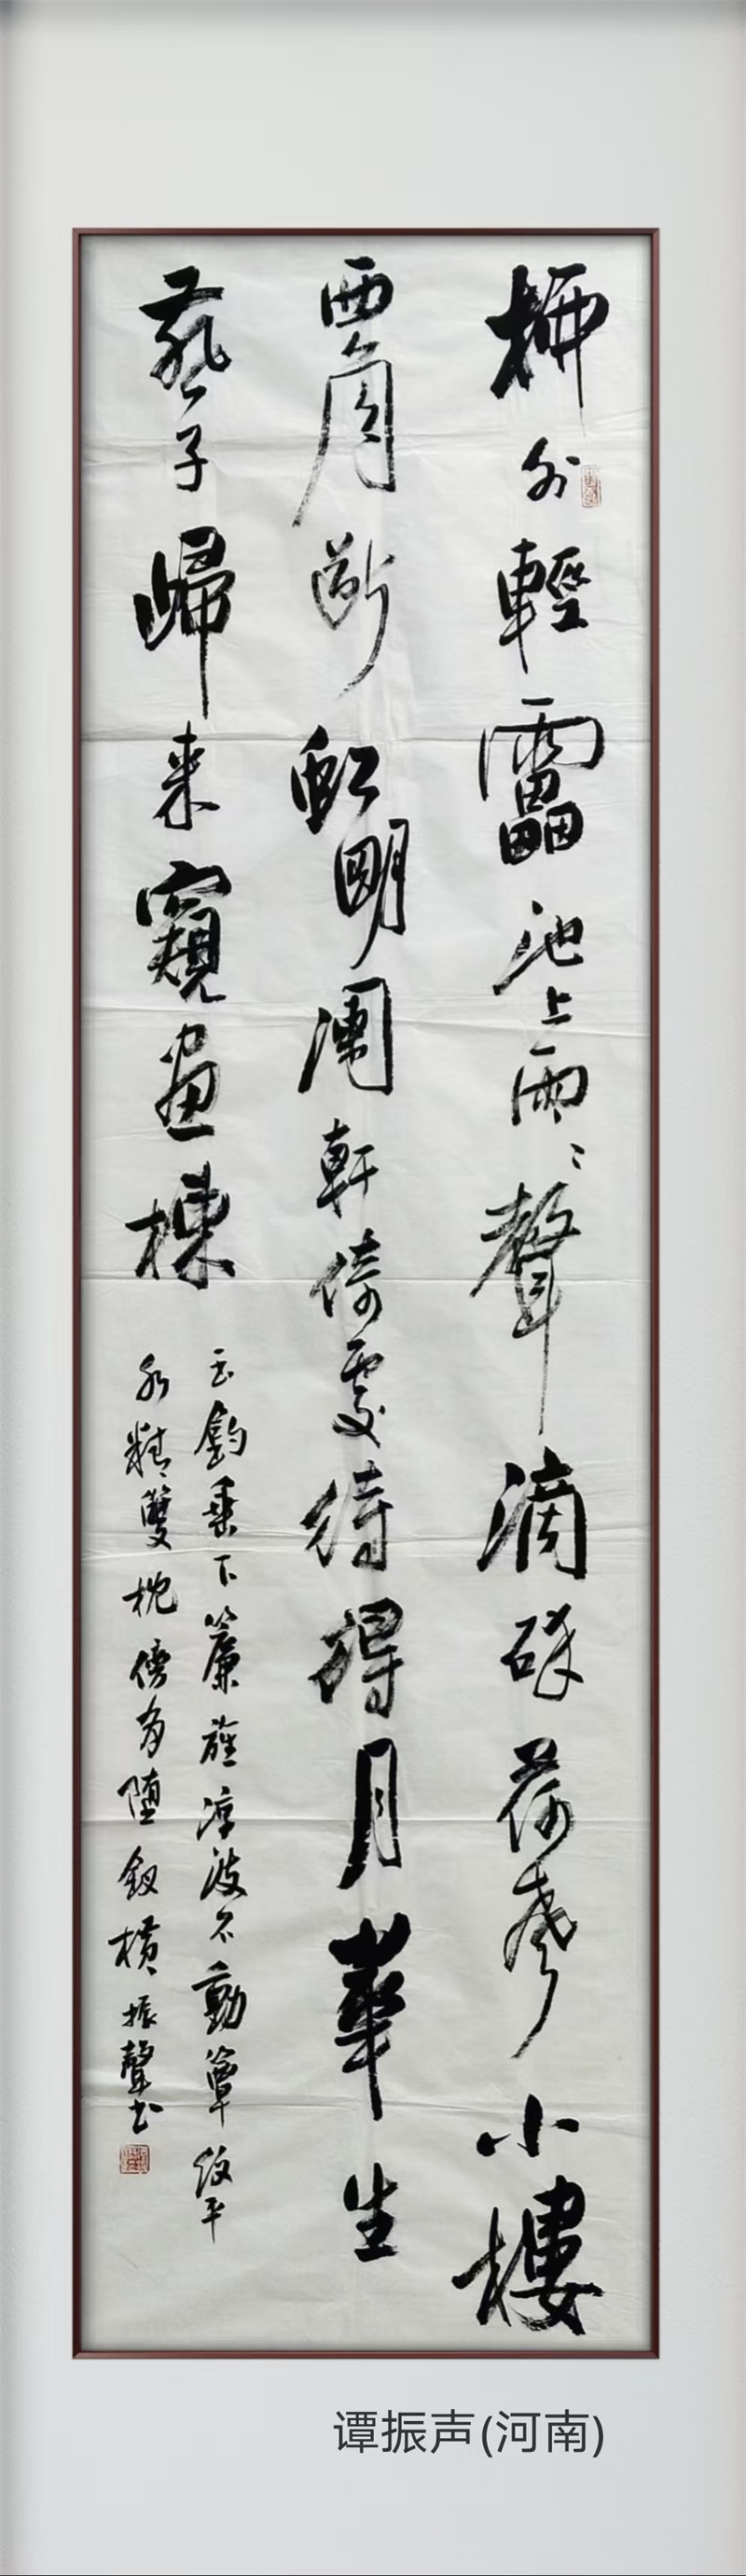 柳外輕靁池上雨〻聲滴碎荷聲小樓
西角斷虹明闌軒倚處待得月華生
燕子歸来窺畫棟
玉鈎垂下簾旌涼波不動簟紋平
水精雙枕傍有堕釵横 振聲书
谭振声(河南)